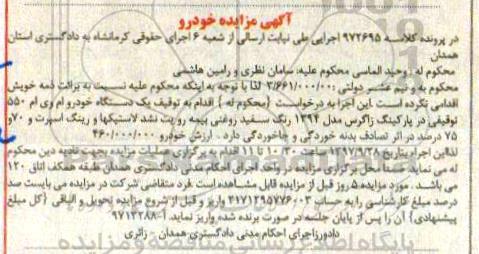 آگهی مزایده خودرو
در پرونده کلاسه ۹۷۲۶۹۵ اجرایی طی نیابت ارسالی از شعبه ۶ اجرای حقوقی کرمانشاه به دادگستری استان
همدان
محکوم له : وحید الماسی محکوم علیه: سامان نظری و رامین هاشمی
محکوم به و نیم عشر دولتی :۰۰۰/۰۰۰/۲/۶۶۱ لذا با توجه به اینکه محکوم علیه نسبت به برائت ذمه خویش
اقدامی نکرده است . این اجرا به درخواست (محکوم له ) اقدام به توقیف یک دستگاه خودرو ام وی ام 550
توقیفی در پارکینگ زاگرس مدل ۱۳۹۴ رنگ سفید روغنی بیمه رویت نشد لاستیکها و رینگ اسپرت و ۷۰و
۷۵ درصد در اثر تصادف بدنه خوردگی و جاخوردگی دارد . ارزش خودرو ۴۶۰/۰۰۰/۰۰۰
لذا این اجرا بتاریخ ۱۳۹۷/۹/۲۸ ساعت ۱۰/۳۰ تا ۱۱ اقدام به برگزاری عملیات مزایده بجهت تادیه دین محکوم
له می نماید ضمنا محل برگزاری مزایده در واحد اجرای احکام مدنی دادگستری همدان طبقه همکف اتاق ۱۲۰
می باشد . مورد مزایده ۵ روز قبل از مزایده قابل مشاهده است .فرد متقاضی شرکت در مزایده می بایست صد
درصد مبلغ کارشناسی را به حساب ۴۱۷۱۲۹۵۷۷۶۰۰۳ واریز و قبل از شروع مزایده تحویل و الباقی (کل مبلغ
پیشنهادی) آن را پس از پایان جلسه در صورت برنده شده واریز نماید. آ-۹۷۱۳۲۸۸
دادورز اجرای احکام مدنی دادگستری همدان - زائری
پایگاه اطلاع رسانی مناقصه و مزایده